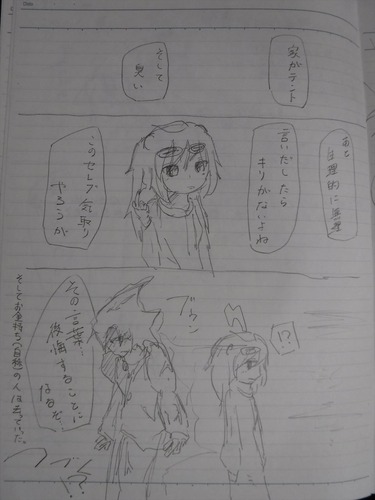 家がテント
そして
臭い
あと
生理的に無理
言いだしたら
キリがないよね
このセレブ気取り
やろうが
!?
ブウン
その言葉…
後悔することに
なるぞ…
そしてお金持ち(自称)の人は去っていった。
!?